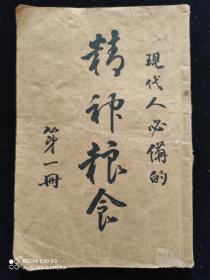 現代人必備的
精神粮食
第一冊
REDMI K30 5G
AI QUAD CAMERA